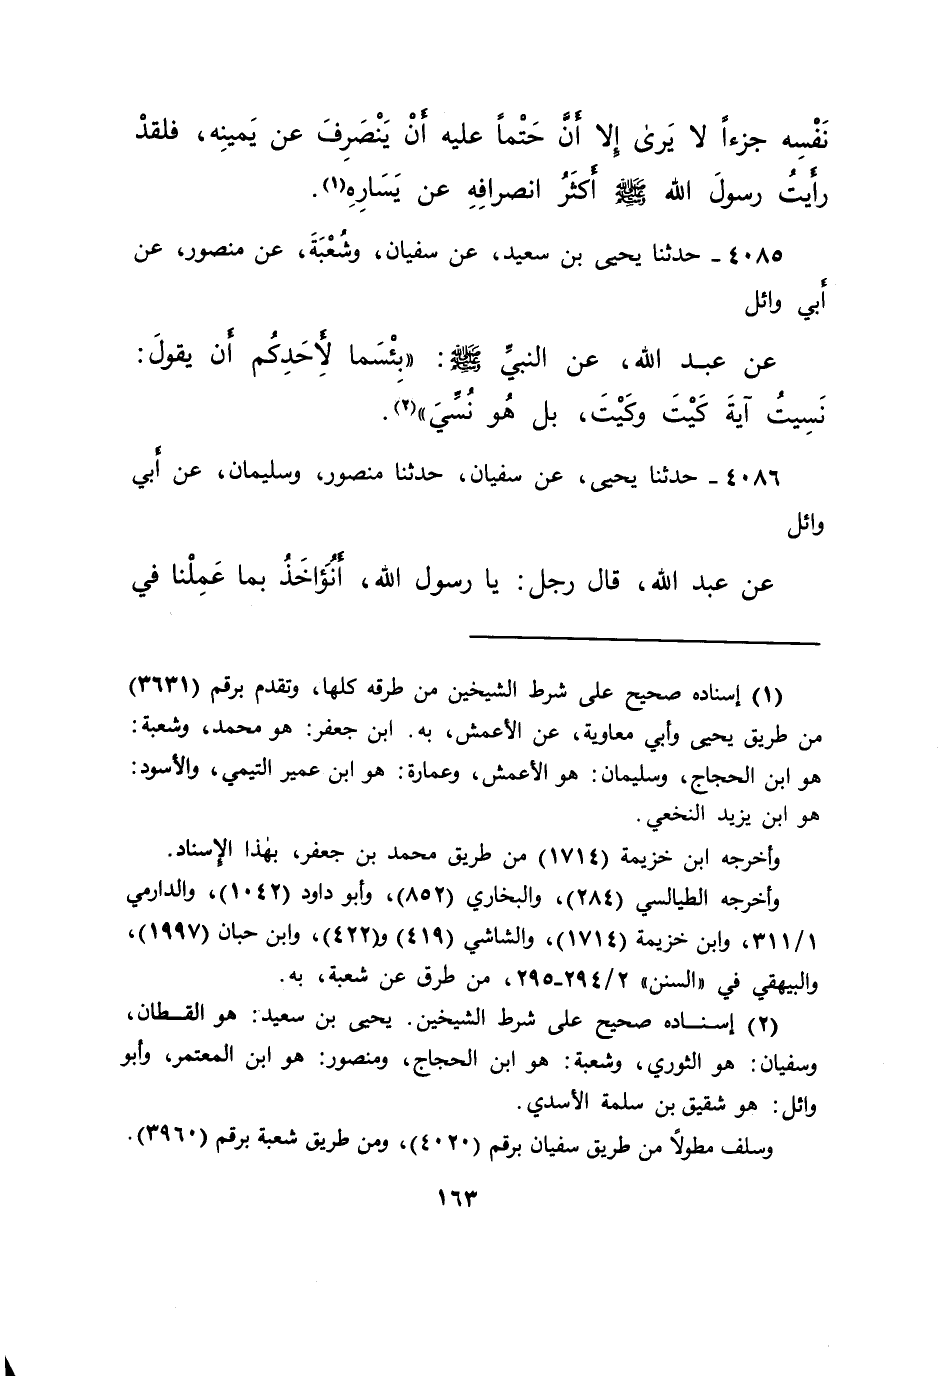 نَفْسِه جزءاً لا يَرىٰ إِلا أَنَّ حَتْماً عليه أَنْ يَنْصَرِفَ عن يَمينِه، فلقدْ
رأَيتُ رسولَ الله ﷺ أَكثَرُ انصرافِهِ عن يَسَارِهِ(١).
٤٠٨٥ ـ حدثنا يحيى بن سعيد، عن سفيان، وشُعْبَةَ، عن منصور، عن
أَبي وائل
عن عبد الله، عن النبيِّ ﷺ: «بِئْسَما لأَحَدِكُم أَن يقولَ:
نَسِيتُ آيةَ كَيْتَ وكَيْتَ، بل هُو نُسِّيَ»(٢).
٤٠٨٦ ـ حدثنا يحيى، عن سفيان، حدثنا منصور، وسليمان، عن أَبي
وائل
عن عبد الله، قال رجل: يا رسول الله، أَنُؤَاخَذُ بما عَمِلْنا في
(١) إسناده صحيح على شرط الشيخين من طرقه كلها، وتقدم برقم (٣٦٣١)
من طريق يحيى وأبي معاوية، عن الأعمش، به. ابن جعفر: هو محمد، وشعبة:
هو ابن الحجاج، وسليمان: هو الأعمش، وعمارة: هو ابن عمير التيمي، والأسود:
هو ابن يزيد النخعي.
وأخرجه ابن خزيمة (١٧١٤) من طريق محمد بن جعفر، بهٰذا الإسناد.
وأخرجه الطيالسي (٢٨٤)، والبخاري (٨٥٢)، وأبو داود (١٠٤٢)، والدارمي
٣١١/١، وابن خزيمة (١٧١٤)، والشاشي (٤١٩) و(٤٢٢)، وابن حبان (١٩٩٧)،
والبيهقي في «السنن» ٢٩٤/٢ـ٢٩٥، من طرق عن شعبة، به.
(٢) إسناده صحيح على شرط الشيخين. يحيى بن سعيد: هو القطان،
وسفيان: هو الثوري، وشعبة: هو ابن الحجاج، ومنصور: هو ابن المعتمر، وأبو
وائل: هو شقيق بن سلمة الأسدي.
وسلف مطولاً من طريق سفيان برقم (٤٠٢٠)، ومن طريق شعبة برقم (٣٩٦٠).
١٦٣